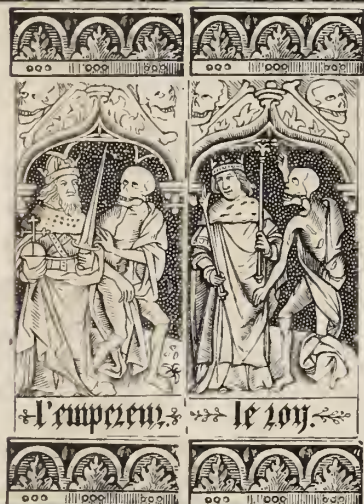 l'empereur.
le roy.